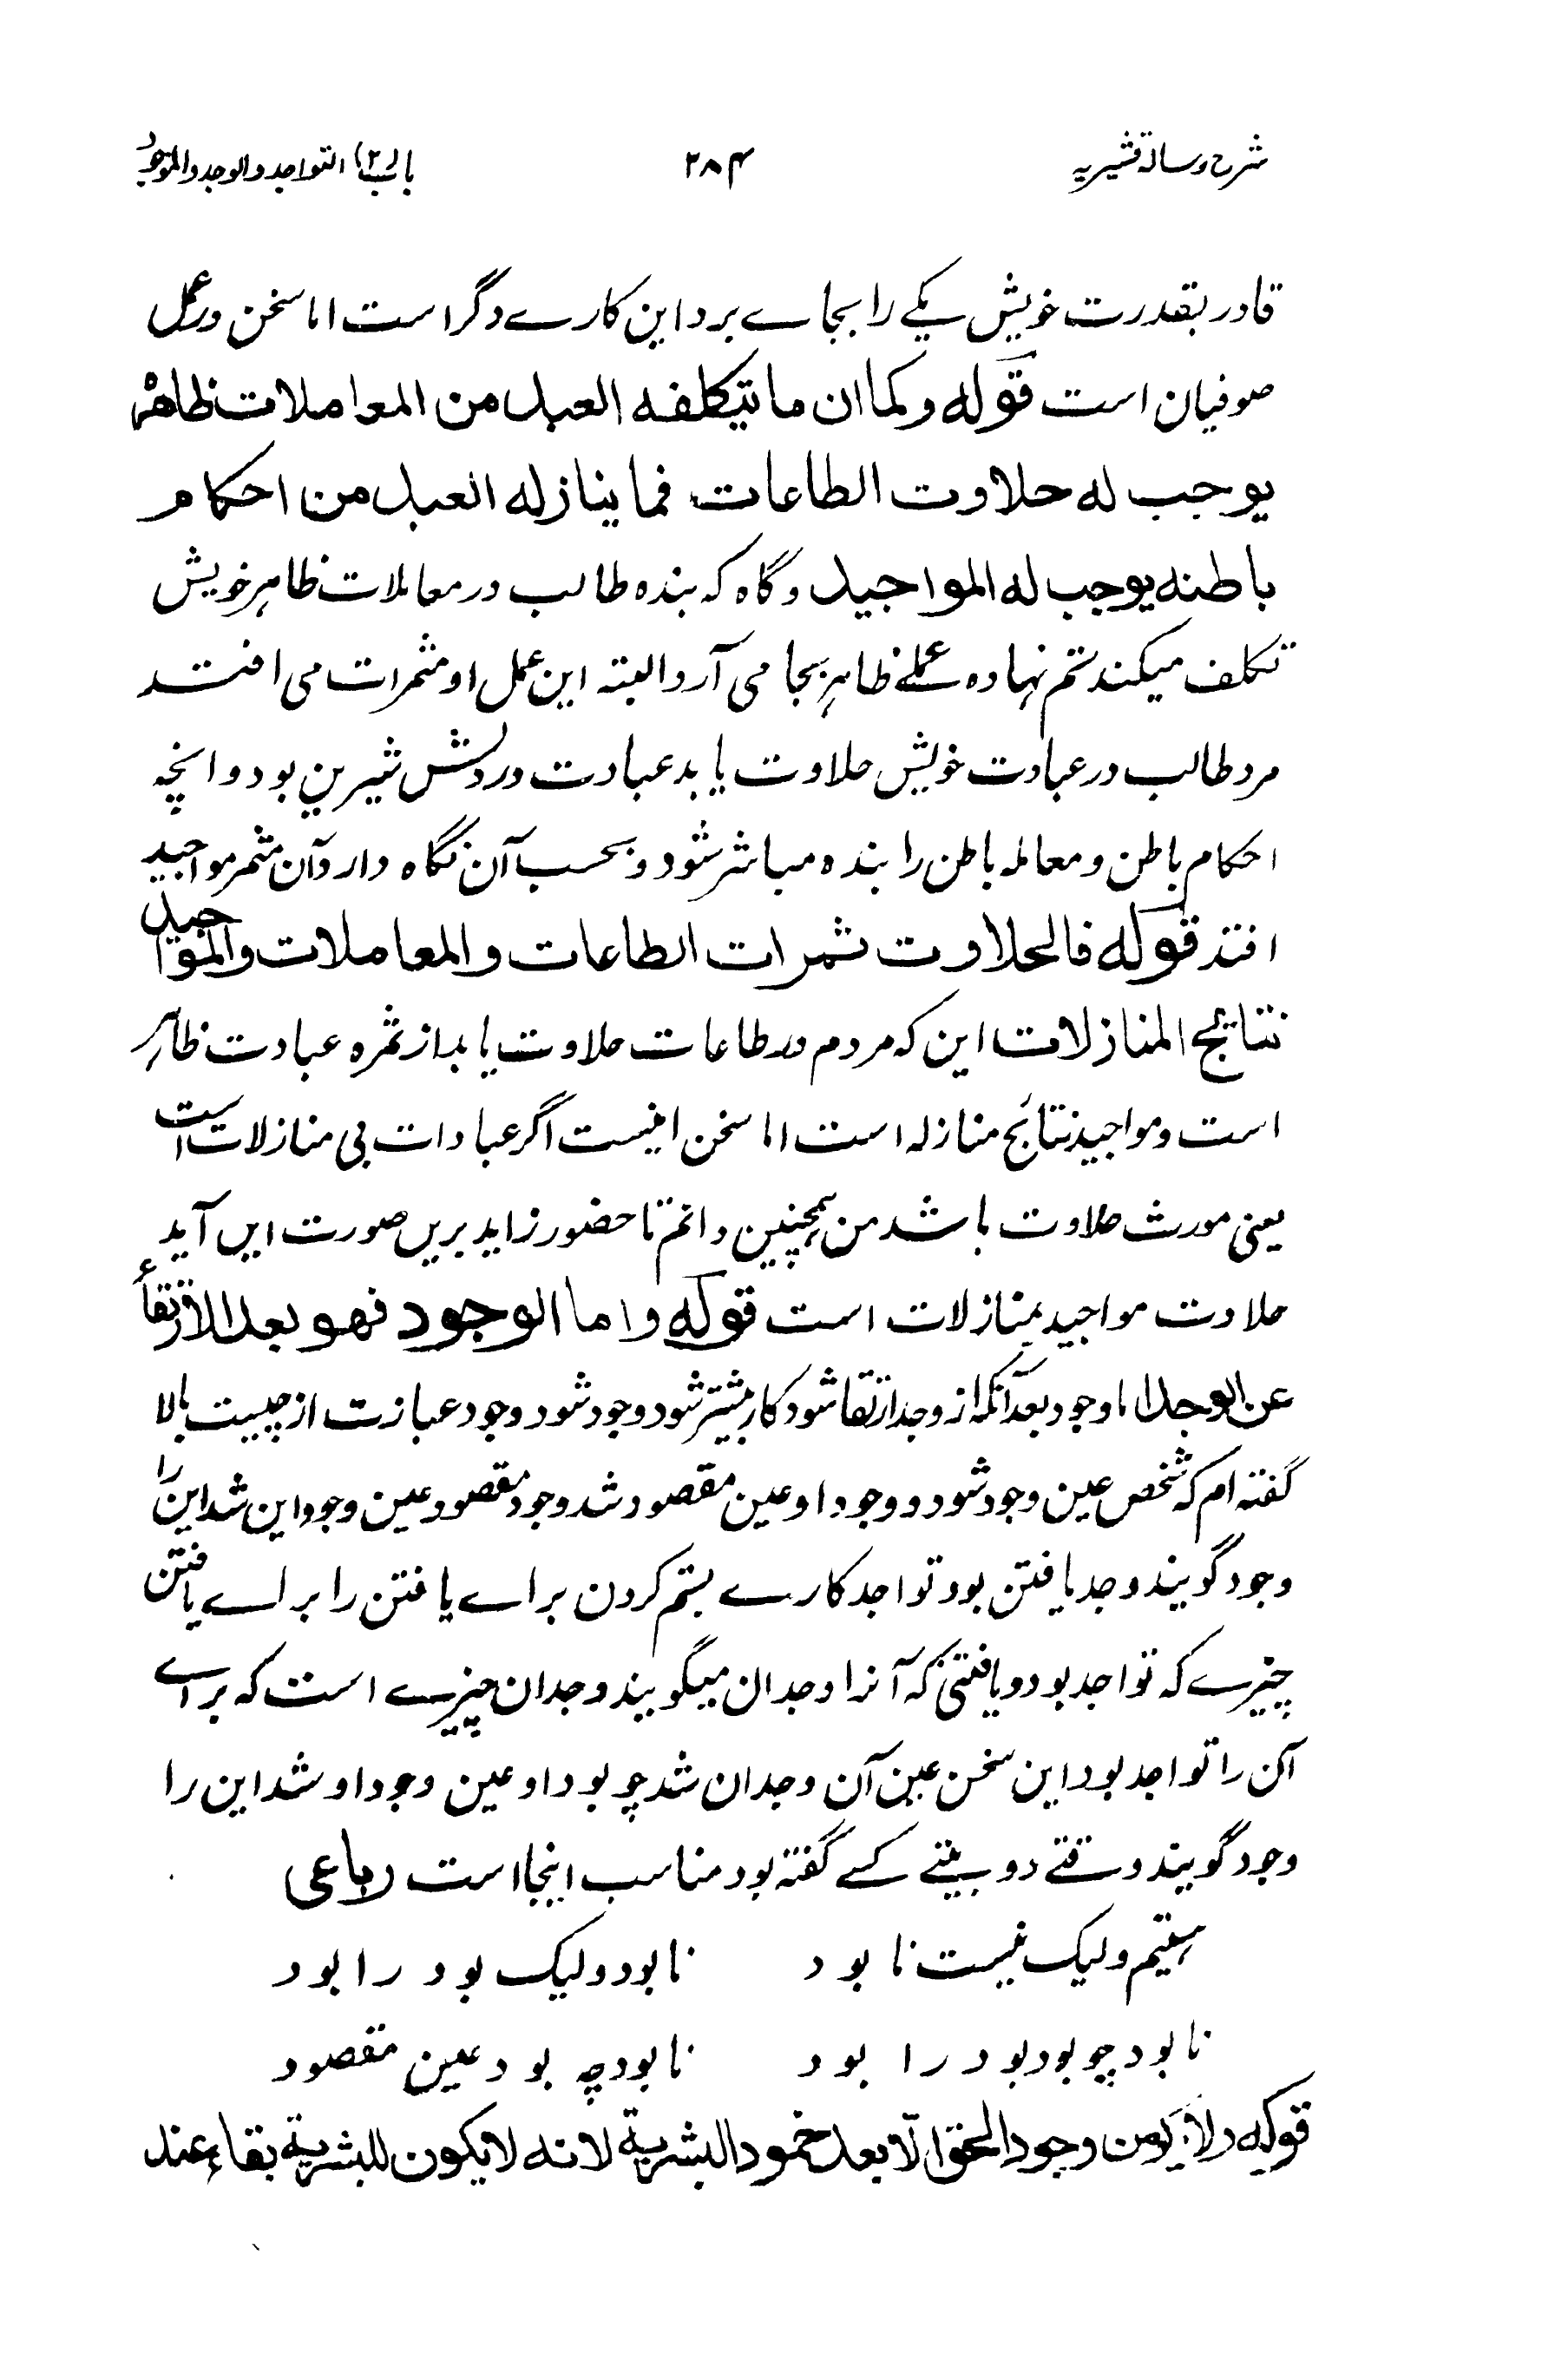 شرح رسالۀ قشیریه ۲۸۴ باب (۲) التواجد والوجد والوجود
قادر بقدرت خویش یکے را بجاے برد این کارے دگر است اما سخن در عمل
صوفیان است قوله وکما ان ما یتکلفه العبد من المعاملات ظاهره
یوجب له حلاوت الطاعات فما ینازله العبد من احکام
باطنه یوجب له المواجید و گاه که بنده طالب در معاملات ظاهر خویش
تکلف میکند ستم نهاده عملے ظاهر بجا می آرد البته این عمل او مثمرات می افتد
مرد طالب در عبادت خویش حلاوت یابد عبادت در دلش شیرین بود و انچه
احکام باطن و معامله باطن را بنده مباشر شود و بحسب آن نگاه دارد آن مثمر مواجید
افتد قوله فالحلاوت ثمرات الطاعات والمعاملات والمواجید
نتایج المنازلات این که مردم در طاعات حلاوت یابد از ثمره عبادت ظاهر
است و مواجید نتایج منازله است اما سخن اینست اگر عبادات بی منازلات است
یعنی مورث حلاوت باشد من همچنین دانم تا حضور زاید برین صورت این آید
حلاوت مواجید بمنازلات است قوله واما الوجود فهو بعد الارتقاء
عن الوجد اما وجود بعد آنکه از وجد ارتقا شود کار بیشتر شود وجود شود وجود عبارت از چیست بالا
گفته ام که شخص عین وجود شود و وجود او عین مقصود شد وجود مقصود عین وجود این شد این را
وجود گویند وجد یافتن بود تواجد کارے بستم کردن براے یافتن را براے یافتن
چیزے که تواجد بود و یافتنی که آنرا وجدان میگویند وجدان چیزے است که براے
آن را تواجد بود این سخن عین آن وجدان شد چو بود او عین وجود او شد این را
وجود گویند وقتے دو بیتے کسے گفته بود مناسب اینجا است رباعی
هستیم ولیک نیست نابود نابود ولیک بود را بود
نابود چو بود بود را بود نابود چه بود عین مقصود
قوله ولا یکون وجود الحق الّا بعد خمود البشریة لانه لا یکون للبشریة بقاء عند